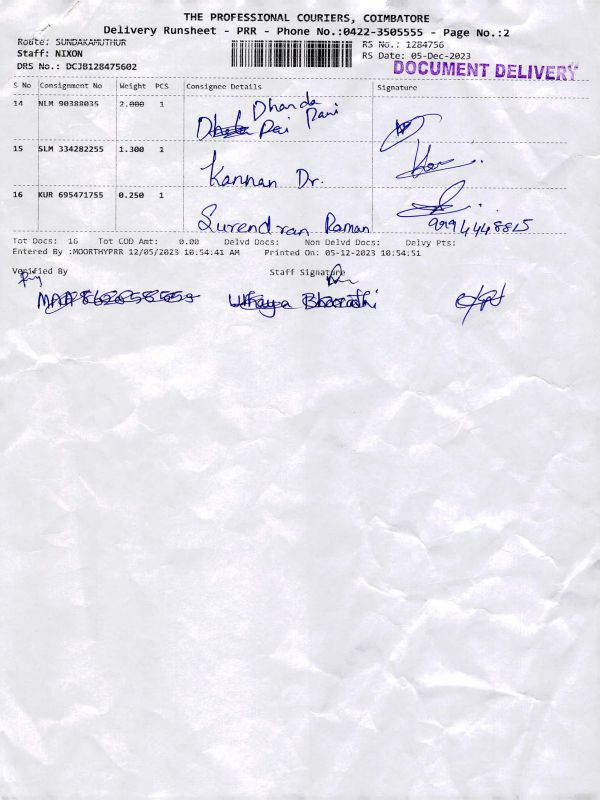 THE PROFESSIONAL COURIERS, COIMBATORE
Delivery Runsheet - PRR - Phone No.:0422-3505555 - Page No.:2
Route: SUNDAKAMUTHUR RS No.: 1284756
Staff: NIXON RS Date: 05-Dec-2023
DRS No.: DCJB128475602 DOCUMENT DELIVERY
S No Consignment No Weight PCS Consignee Details Signature
14 NLM 90388035 2.000 1 Dhanda Pani
Pai
15 SLM 334282255 1.300 1 Kannan Dr.
16 KUR 695471755 0.250 1
Surendran Raman 9994448815
Tot Docs: 16 Tot COD Amt: 0.00 Delvd Docs: Non Delvd Docs: Delvy Pts:
Entered By :MOORTHYPRR 12/05/2023 10:54:41 AM Printed On: 05-12-2023 10:54:51
Verified By Staff Signature
Uthaya Bharathi